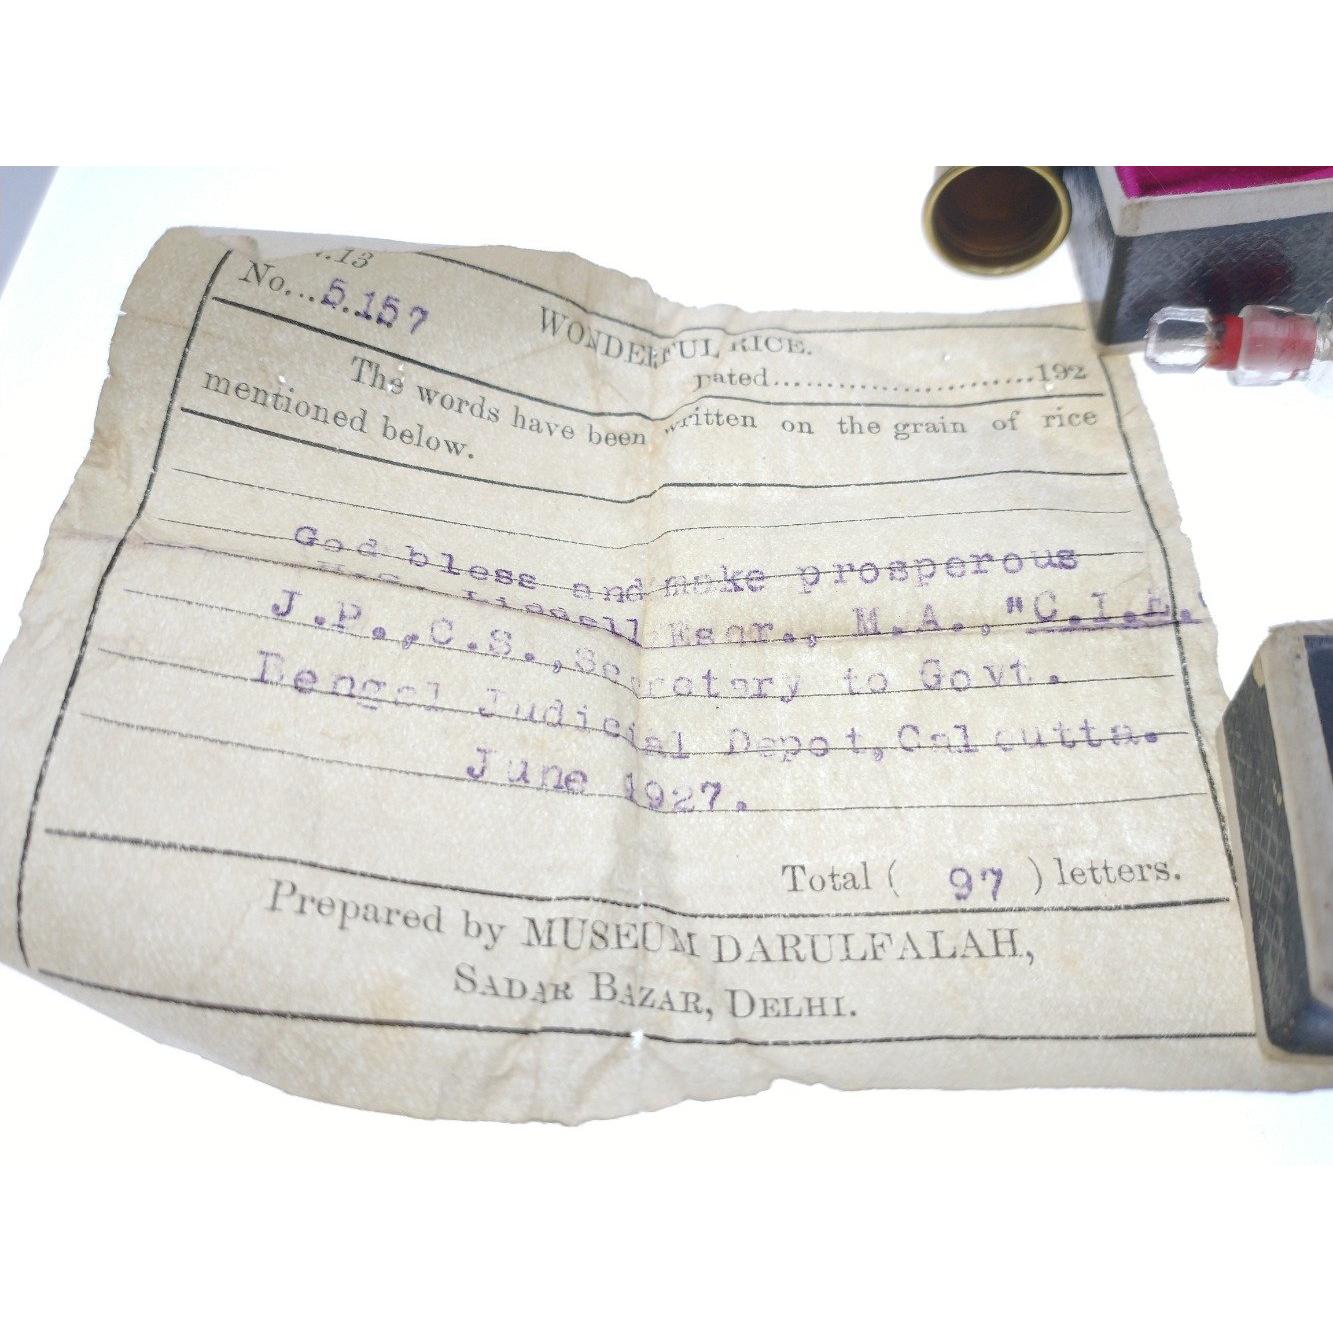 .13
No...5.157
WONDERFUL RICE.
Dated..............................192
The words have been written on the grain of rice
mentioned below.
God bless and make prosperous
Liddell Esqr., M.A., "C.I.E."
J.P.,C.S.,Secretary to Govt.
Bengal Judicial Depot,Calcutta.
June 1927.
Total ( 97 ) letters.
Prepared by MUSEUM DARULFALAH,
SADAR BAZAR, DELHI.